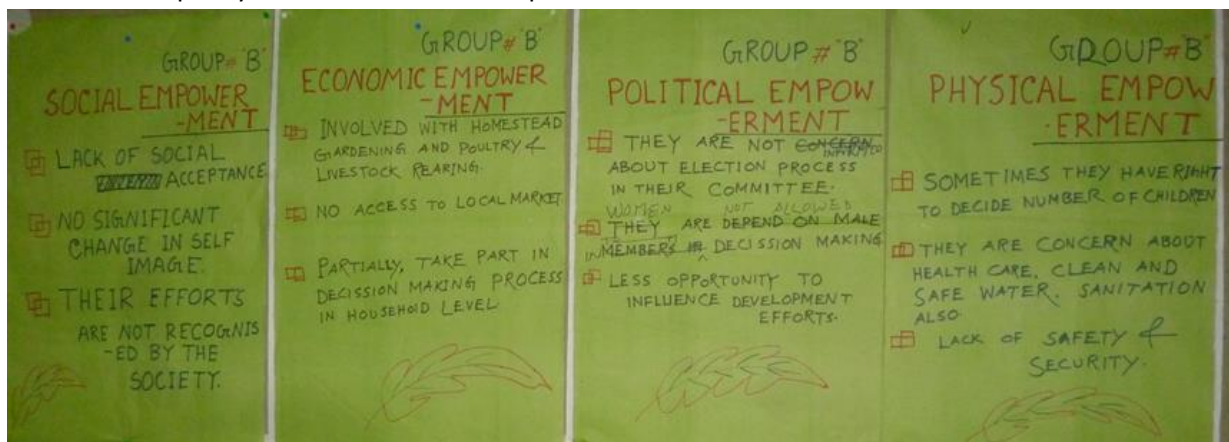 GROUP # "B"
SOCIAL EMPOWER
-MENT
LACK OF SOCIAL
ACCEPTANCE
NO SIGNIFICANT
CHANGE IN SELF
IMAGE.
THEIR EFFORTS
ARE NOT RECOGNIS
-ED BY THE
SOCIETY.
GROUP # "B"
ECONOMIC EMPOWER
-MENT
INVOLVED WITH HOMESTEAD
GARDENING AND POULTRY &
LIVESTOCK REARING.
NO ACCESS TO LOCAL MARKET.
PARTIALLY, TAKE PART IN
DECISSION MAKING PROCESS
IN HOUSEHOLD LEVEL
GROUP # "B"
POLITICAL EMPOW
-ERMENT
THEY ARE NOT CONCERN
ABOUT ELECTION PROCESS
IN THEIR COMMITTEE.
WOMEN NOT ALLOWED
THEY ARE DEPEND ON MALE
MEMBERS IN DECISSION MAKING
LESS OPPORTUNITY TO
INFLUENCE DEVELOPMENT
EFFORTS.
GROUP # "B"
PHYSICAL EMPOW
-ERMENT
SOMETIMES THEY HAVE RIGHT
TO DECIDE NUMBER OF CHILDREN
THEY ARE CONCERN ABOUT
HEALTH CARE, CLEAN AND
SAFE WATER, SANITATION
ALSO.
LACK OF SAFETY &
SECURITY.